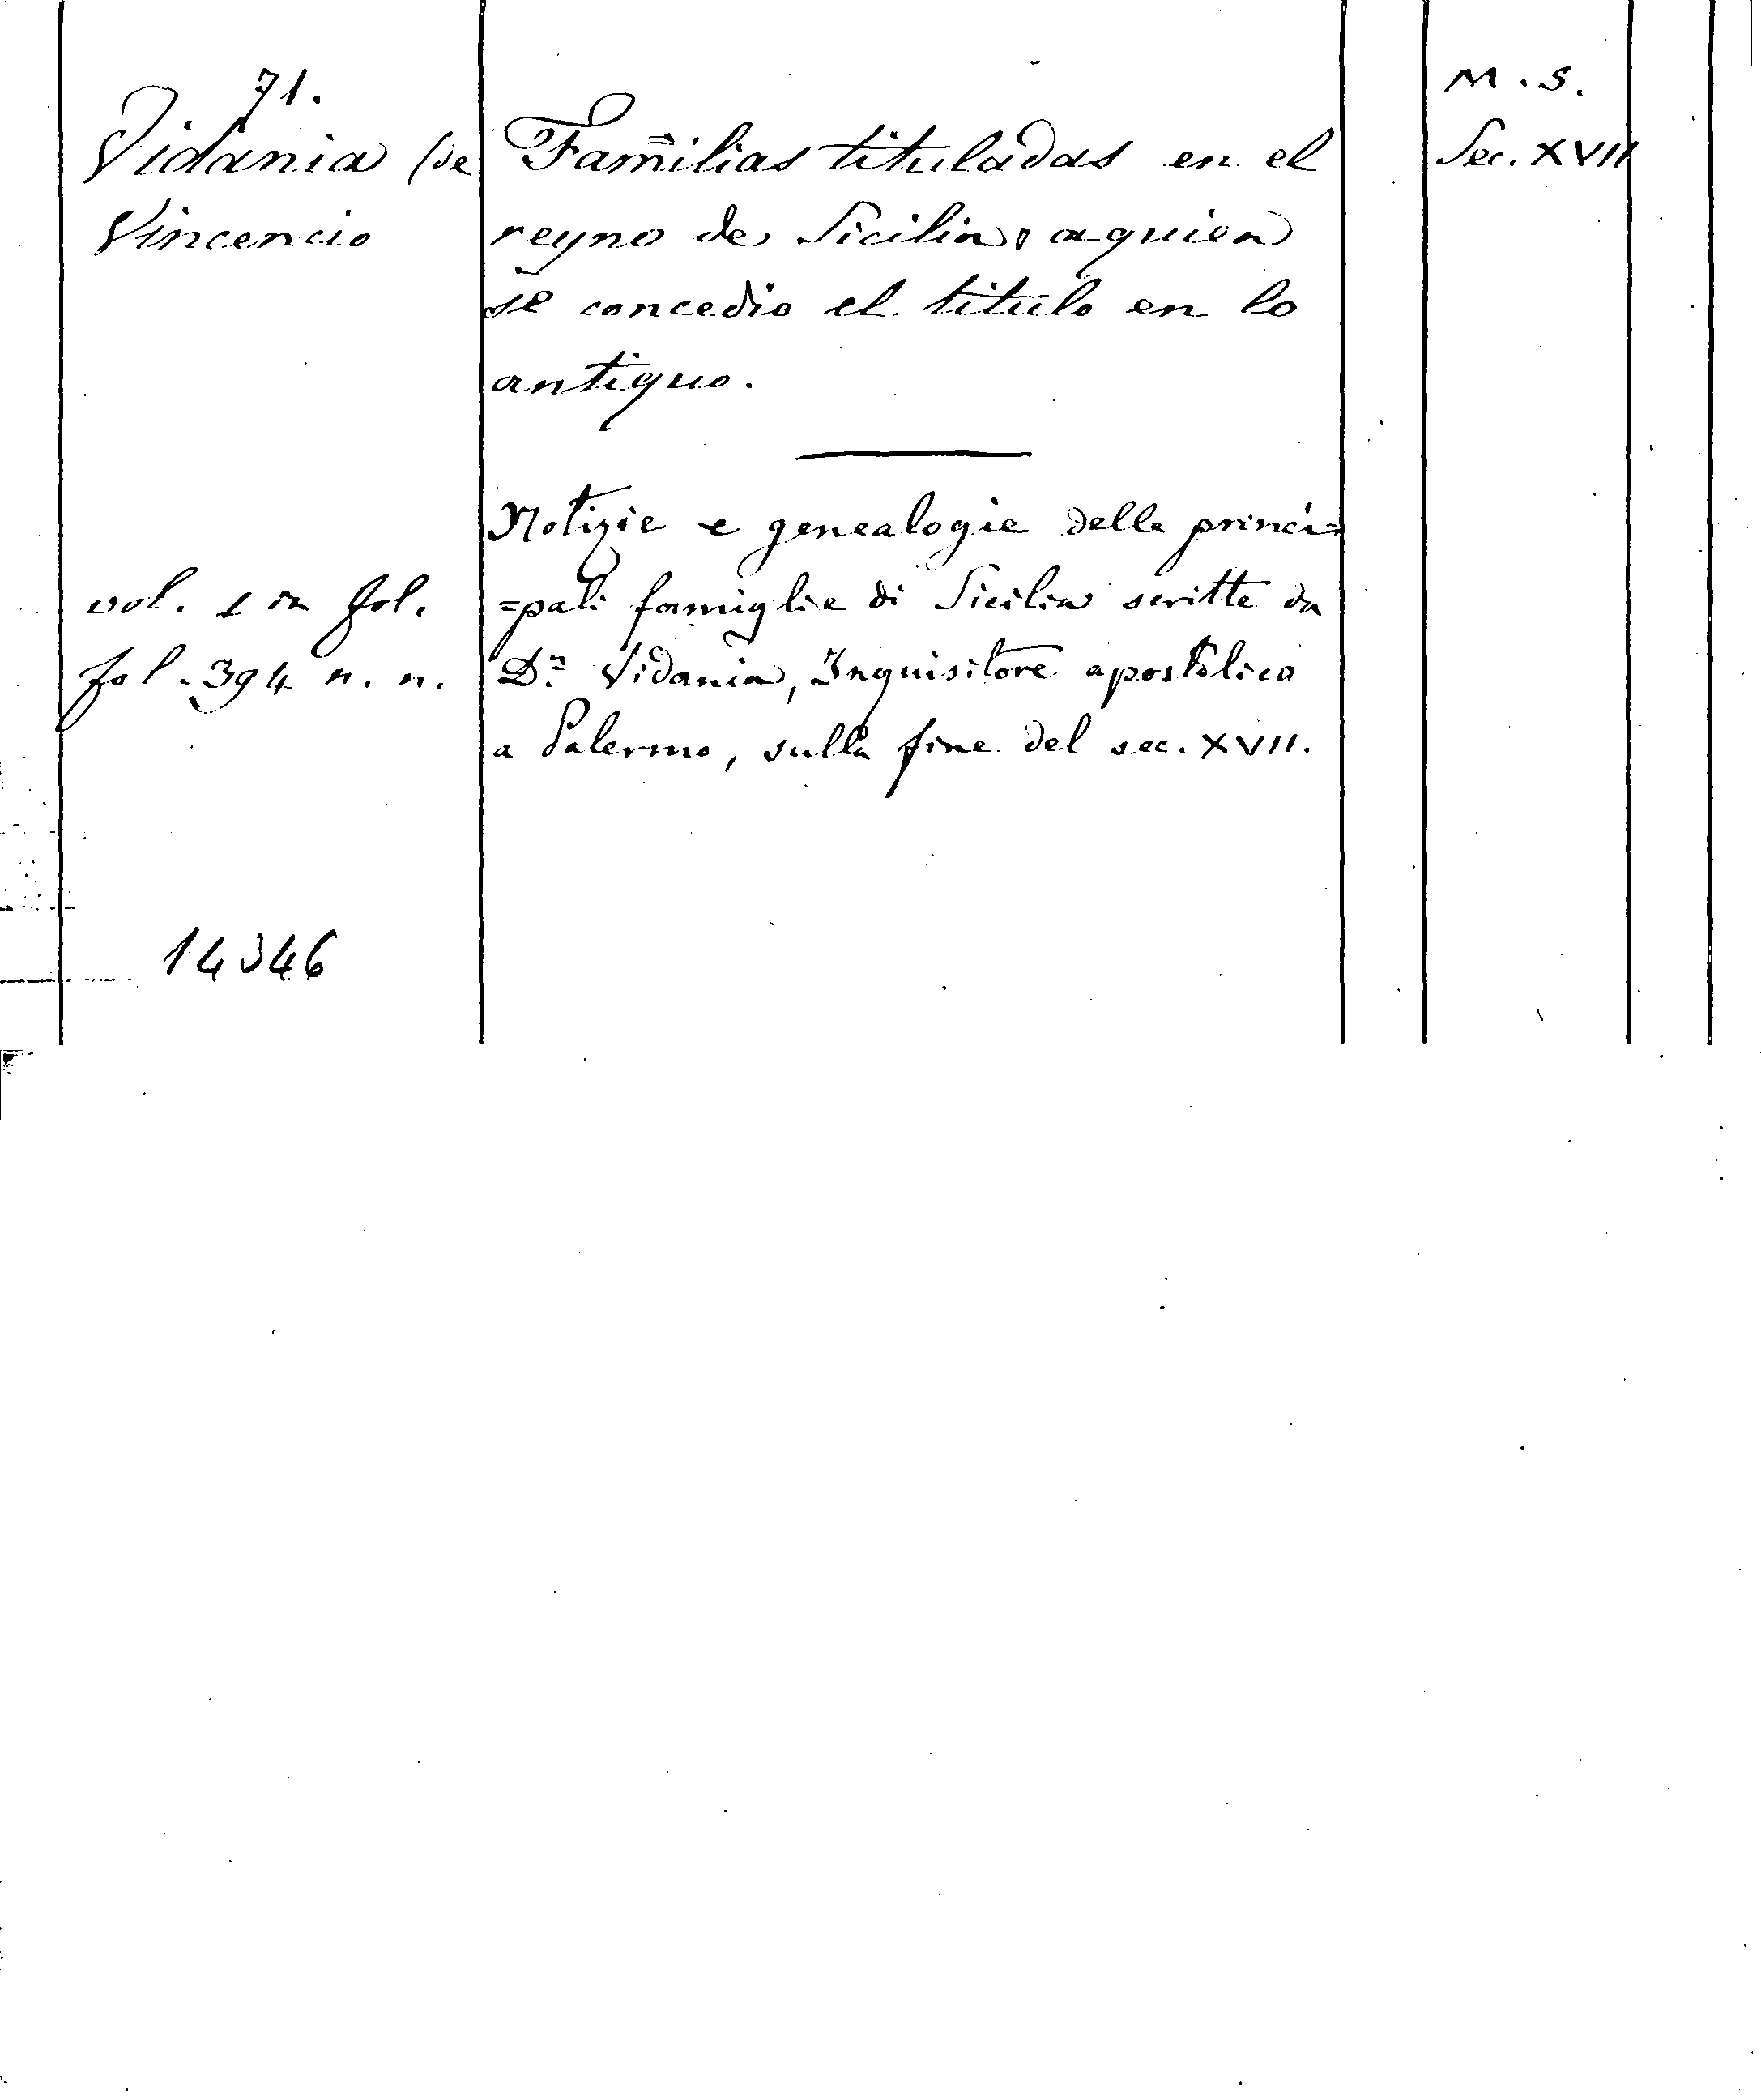 71.
Vidania (de
Vincencio
vol. 1 in fol.
fol. 394 n. n.
14346
Familias tituladas en el
reyno de Sicilia, a quien
se concedio el titulo en lo
antiguo.
Notizie e genealogie delle princi=
=pali famiglie di Sicilia scritte da
Dn. Vidania, Inquisitore apostolico
a Palermo, sulla fine del sec. XVII.
M. S.
Sec. XVII